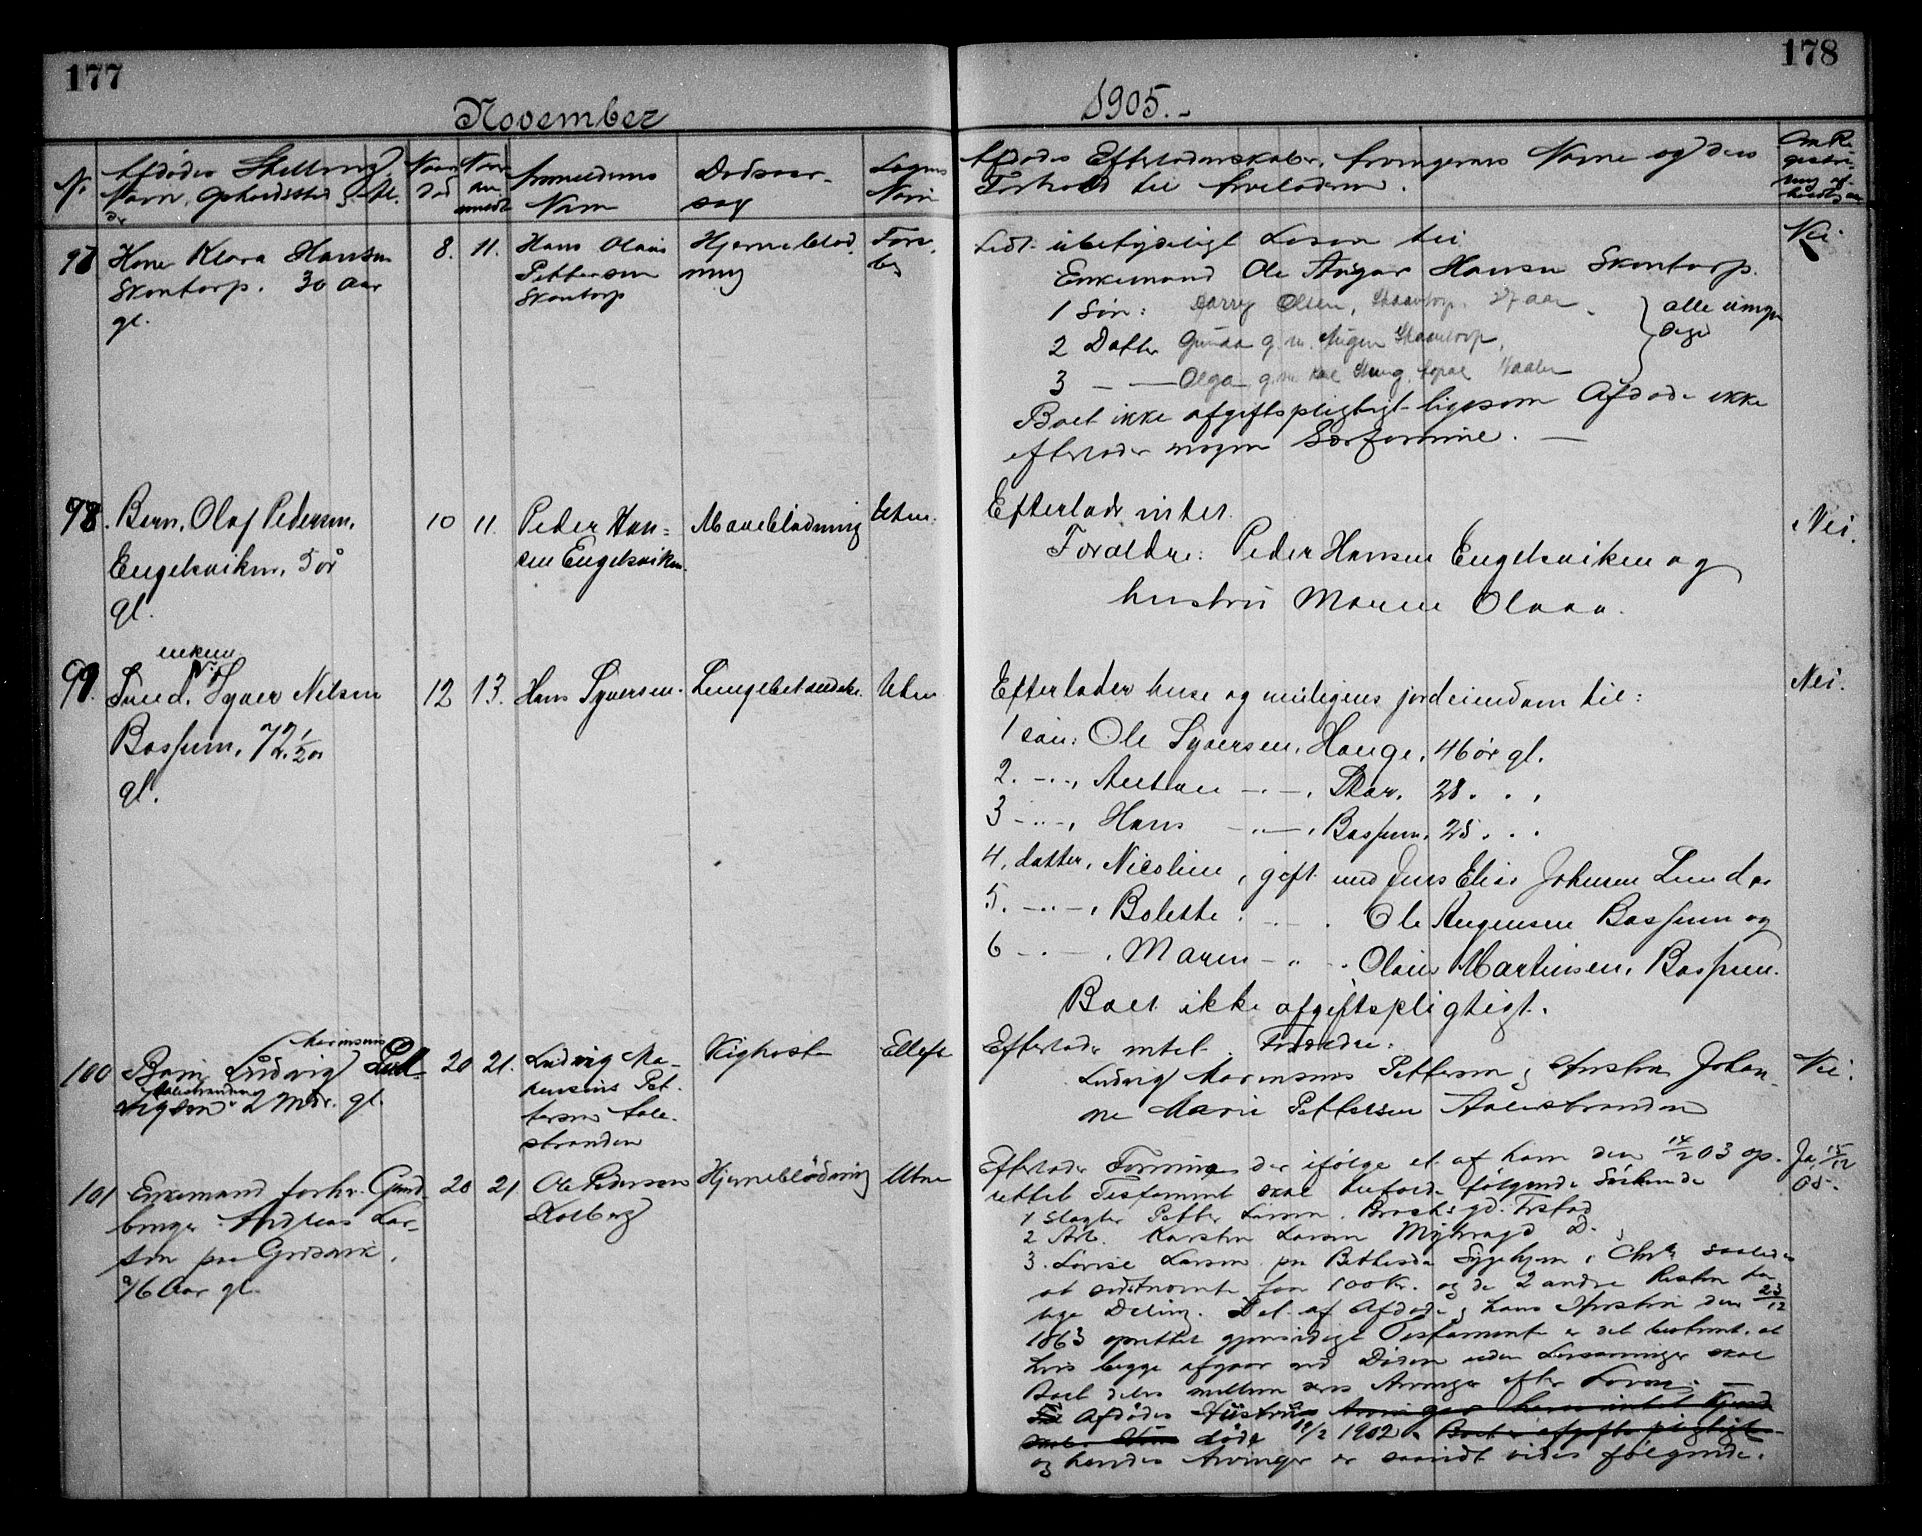 177
178
November
1905.
No
Afdødes Stilling,
Navn, Opholdssted & Al-
der
Naar
død
Naar
an-
meldt
Anmelderens
Navn
Dødsaar-
sag
Sogns
Navn
Afdødes Efterladenskaber, Arvingernes Navne og deres
Forhold til Arveladeren.
Om Re-
gistre-
ring af-
holdes
97
Kone Klara Hansen
30 Aar
gl.
8.
11.
Hans Olaus
Pettersen
Hjerneblød-
ning
ubetydeligt Løsøre til
Enkemand Ole Hansen
1 Søn: Harry Olsen, 27 aar
2 Datter
3 — — Olga
alle umyn
dige
Boet ikke afgiftspligtigt ligesom Afdøde ikke
efterlader nogen Særformue. —
Nei
98.
Barn, Olaf Pedersen,
Engelsviken, 5 år
gl.
10
11.
Peder Han-
sen Engelsviken.
Maveblødning
Uten.
Efterlader intet.
Forældre: Peder Hansen Engelsviken og
hustru Maren Olava.
Nei.
99.
enkem.
Syver Nilsen
Bossum, 72 1/2 år
gl.
12
13.
Hans Syversen.
Lungebetændelse.
Uten
Efterlader huse og muligens jordeiendom til:
1 søn: Ole Syversen, Hauge, 46 år gl.
2. -"-, Anton -"-, Skar, 28. " "
3 -"-, Hans -"-, Bossum, 25. " "
4, datter, Nicoline, gift med Jens Elias Johnsen Lunde
5. -"-, Bolette. " " Ole Bossum og
6 -"-, Maren -"- Olaus Martinsen, Bossum.
Boet ikke afgiftspligtigt.
Nei.
100
Barn Ludvig Marensius Lud-
vigsen Aalestranden 2 Mdr. gl.
20
21.
Ludvig Ma-
rensius Pet-
tersen Aale-
stranden
Kighoste
Efterlader intet. Forældre:
Ludvig Marensius Pettersen & Hustru Johan-
ne Marie Pettersen Aalestranden
Nei.
101
Enkemand forhv. Gaard-
bruger Andreas Lar-
sen paa
76 Aar gl.
20
21
Ole Pedersen
Kolberg
Hjerneblødning
Uten
Efterlader Formue der ifølge et af ham den 14/2 03 op-
rettet Testament skal tilfalde følgende Søskende
1 Slagter Petter Larsen,
2 Arb. Karsten Larsen
3. Lovise Larsen paa Bethesda Sygehjem i Chra saaledes
at sidstnævnte faar 100 Kr. og de 2 andre Resten til
lige Deling. Det af Afdøde & hans Hustru den 23/12
1863 oprettet gjensidige Testamente er det bestemt at
hvis begge afgaar ved Døden uden Livsarvinger skal
Boet deles mellem deres Arvinger efter Loven. —
Afdødes Hustru
døde 10/2 1902
og hendes Arvinger er følgende.
Ja, 15/12
05.